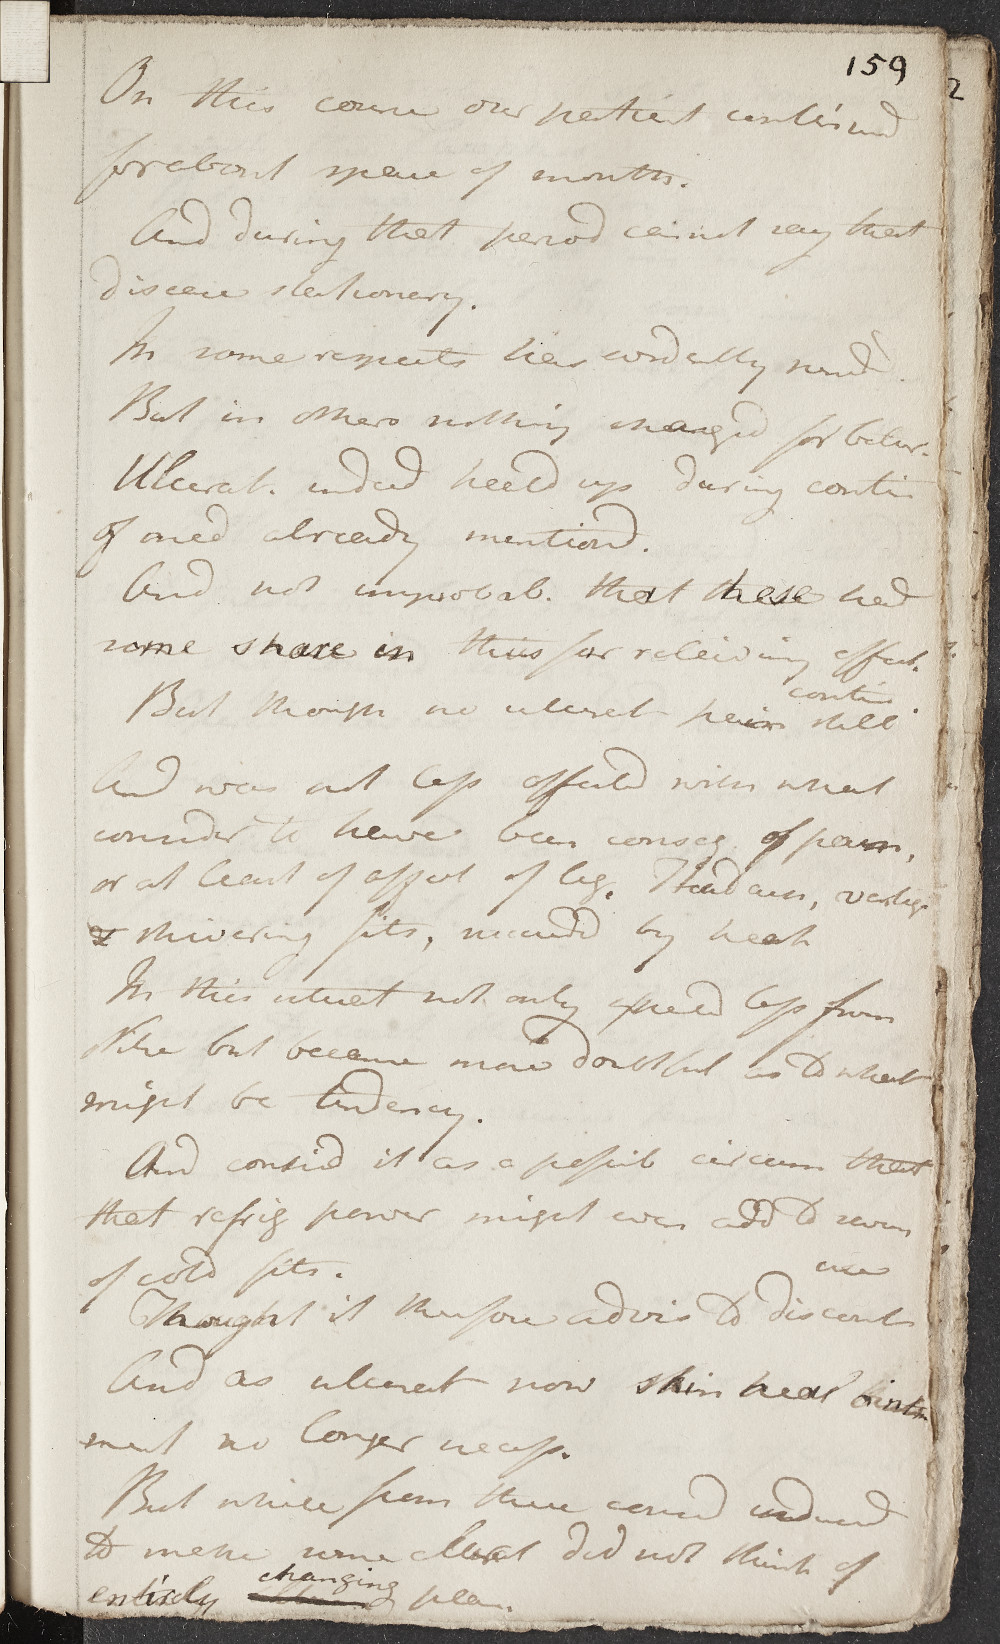 159
On this course our patient continued
for about space of months.
And during that period cannot say that
disease stationary.
In some respects has cordially
But in others nothing changed for better.
Ulcerat. indeed heald up during contin
of med already mentiond.
And not improbab. that these had
some share in thus far releiving effect.
contin
But though no ulcerat pain still
And was not less affected with what
consider to have been conseq of pain,
or at least of affect of leg. Headach, vertigo
& shivering fits, succeedd by heat
In this situat not only expected less from
Nitre but became more doubtful as to what
might be tendency.
And consid it as a possib circum that
that refrig power might even add to recurr
of cold fits.
use
Thought it therefore advis to discont
And as ulcerat now skin heal ointm
ment no longer necess.
But while from these consid induced
to make some alterat did not think of
changing
entirely plan.